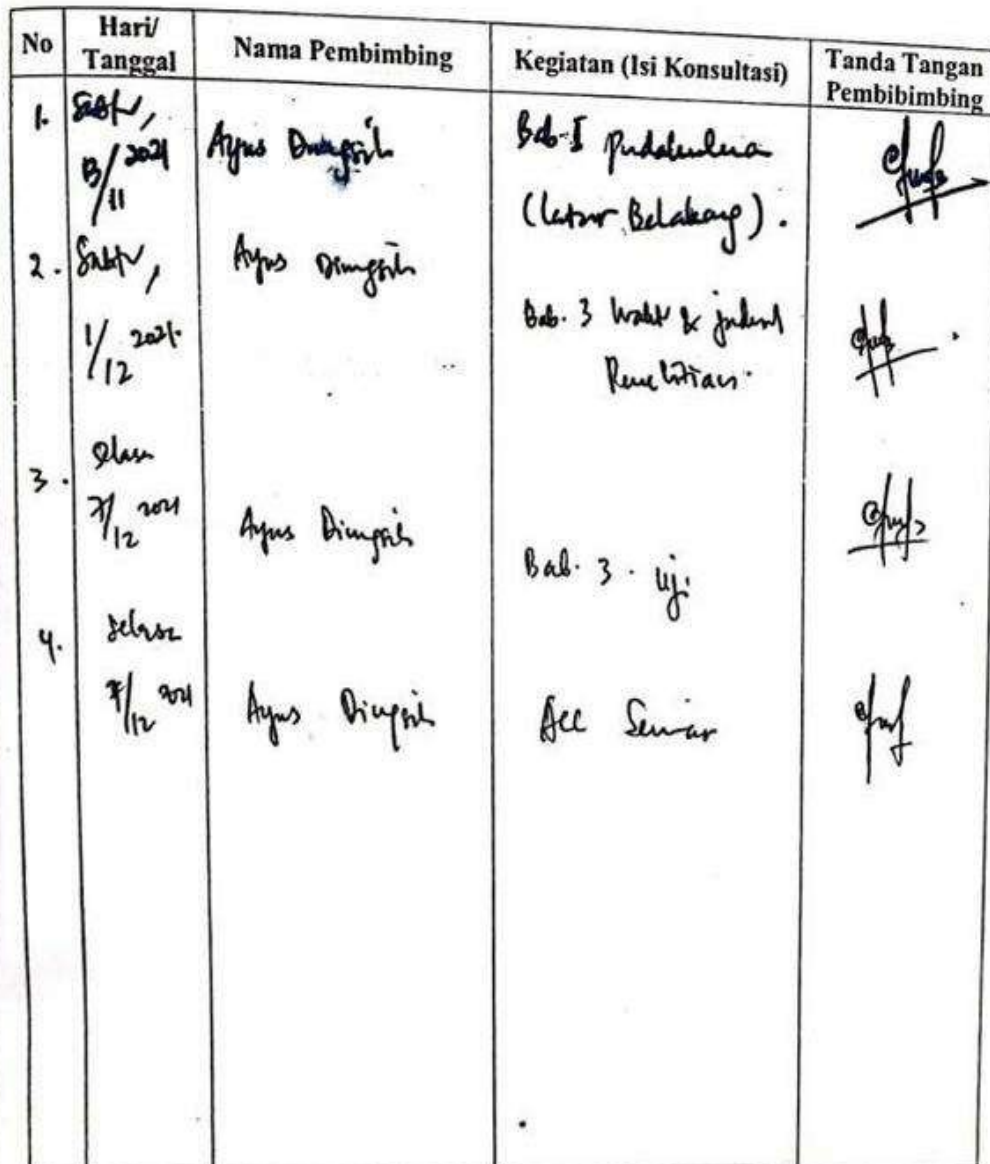 No Hari/ Tanggal Nama Pembimbing Kegiatan (Isi Konsultasi) Tanda Tangan Pembibimbing
1. Sabtu, 13/11 2021 Agus Bab I Pendahuluan
(Latar Belakang).
2. Sabtu, 1/12 2021 Agus Bab. 3 Waktu & jadwal
Penelitian.
3. Selasa 7/12 2021 Agus Bab. 3. Uji
4. Selasa 7/12 2021 Agus Acc Seminar